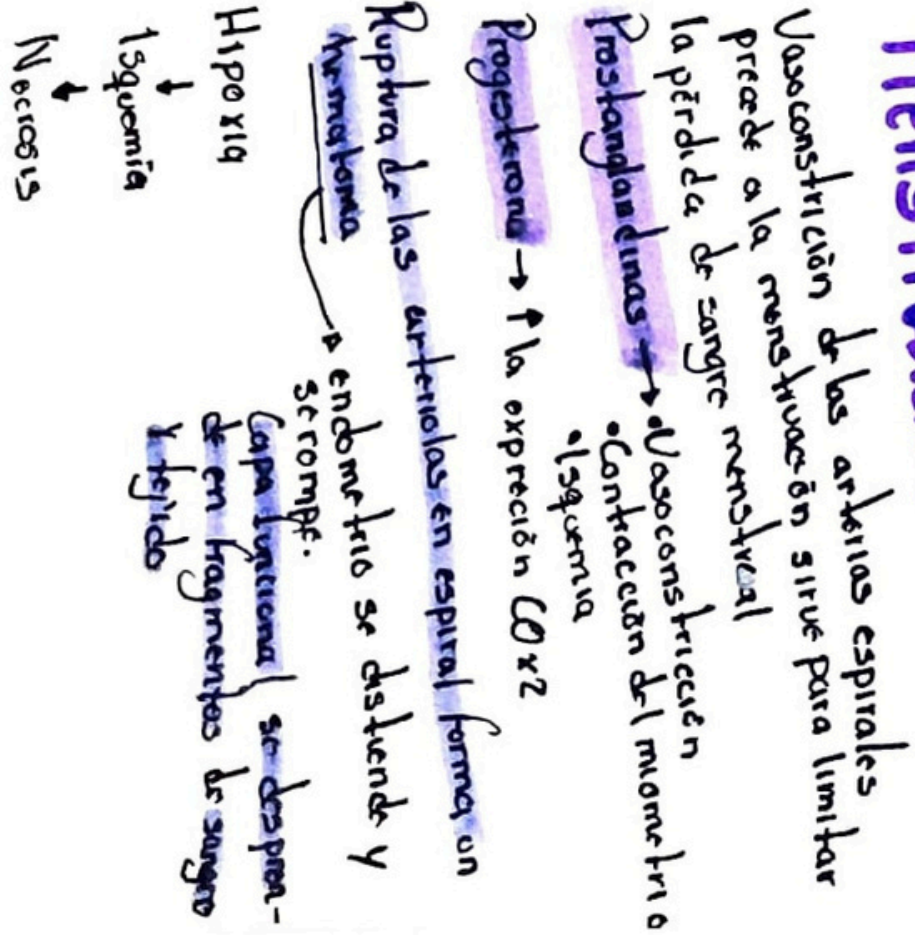 Vasoconstrición de las arterias espirales
precede a la menstruación sirve para limitar
la pérdida de sangre menstrual
Prostanglandinas → • Vasoconstricción
• Contracción del miometrio
• Isquemia
Progesterona → ↑ la expreción COX2
Ruptura de las arteriolas en espiral forma un
hematoma
→ endometrio se distiende y
se rompe.
Capa funcional se despren-
de en fragmentos de sangre
y tejido
Hipoxia
↓
Isquemia
↓
Necrosis